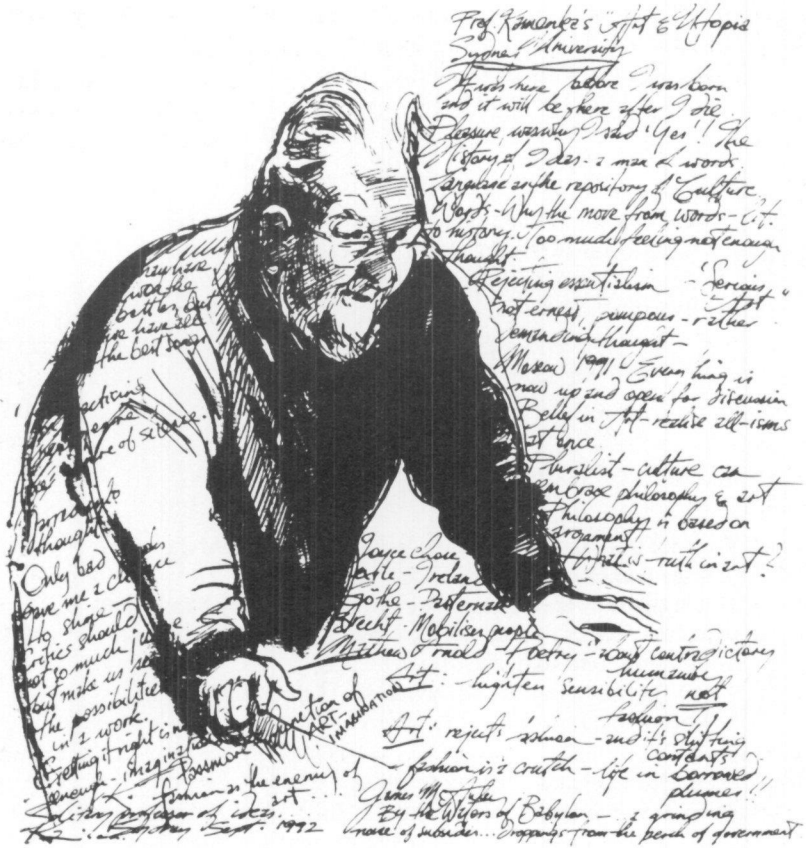 Prof. Kamenka's "Art & Utopia
Sydney University
It was here before I was born
and it will be here after I die.
Pleasure I said 'Yes'! The
History of Ideas - a man of words.
Language the repository of Culture
Words - Why the move from words - Lit.
to history. Too much feeling not enough
thought.
Rejecting essentialism - 'Serious
Art"
not ernest, pumpous - rather
demanding thought -
Moscow 1991 Everything is
now up and open for discussion
Belief in Art - realise all-isms
at once.
Pluralist - culture can
embrace philosophy & art
Philosophy is based on
argument
What is truth in art?
Joyce chose
exile - Ireland
Göthe - Pasternak
Brecht - Mobiliser people
Mathew Arnold - Poetry - contradictory
humanure
Art: highten sensibility not
fashion!
Art: rejects fashion - and it's shifting
contants
fashion is a crutch - life in borrowed
plumes!!
James McAuley
By the Waters of Babylon - a grinding
noise of suburbs... droppings from the perch of government
may have
won the
battles but
we have all
the best songs
of science.
thought
Only bad
gave me a chance
to shine -
Critics should
not so much judge
but make us see
the possibilities
in a work.
Getting it right is not
enough - imagination
Passmore
function of
ART
IMAGINATION
fashion as the enemy of
art...
Solitary professor of ideas
Sydney Sept. 1992